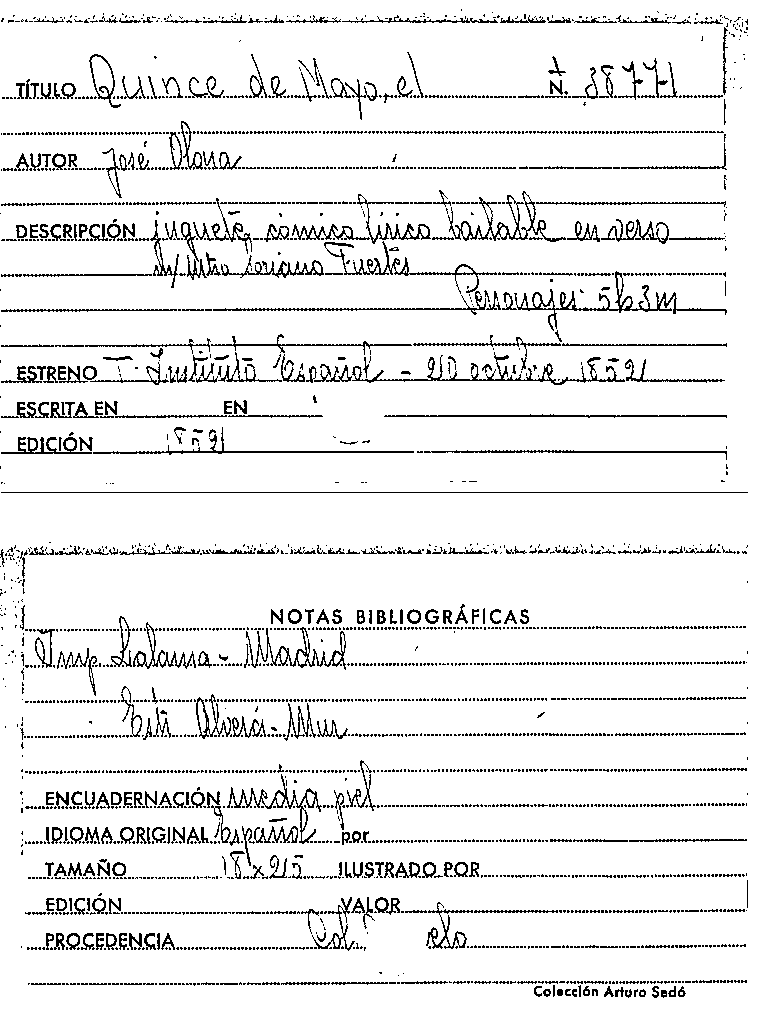 TÍTULO Quince de Mayo, el N. 38771
AUTOR José Olona
DESCRIPCIÓN juguete cómico lírico bailable en verso
m/ Mtro Soriano Fuertes
Personajes: 5h 3m
ESTRENO T. Instituto Español - 20 octubre 1852
ESCRITA EN EN
EDICIÓN 1852
NOTAS BIBLIOGRÁFICAS
Imp Lalama - Madrid
Alverá - Mur
ENCUADERNACIÓN media piel
IDIOMA ORIGINAL Español por
TAMAÑO 18 x 25 ILUSTRADO POR
EDICIÓN VALOR
PROCEDENCIA Col.
Colección Arturo Sedó